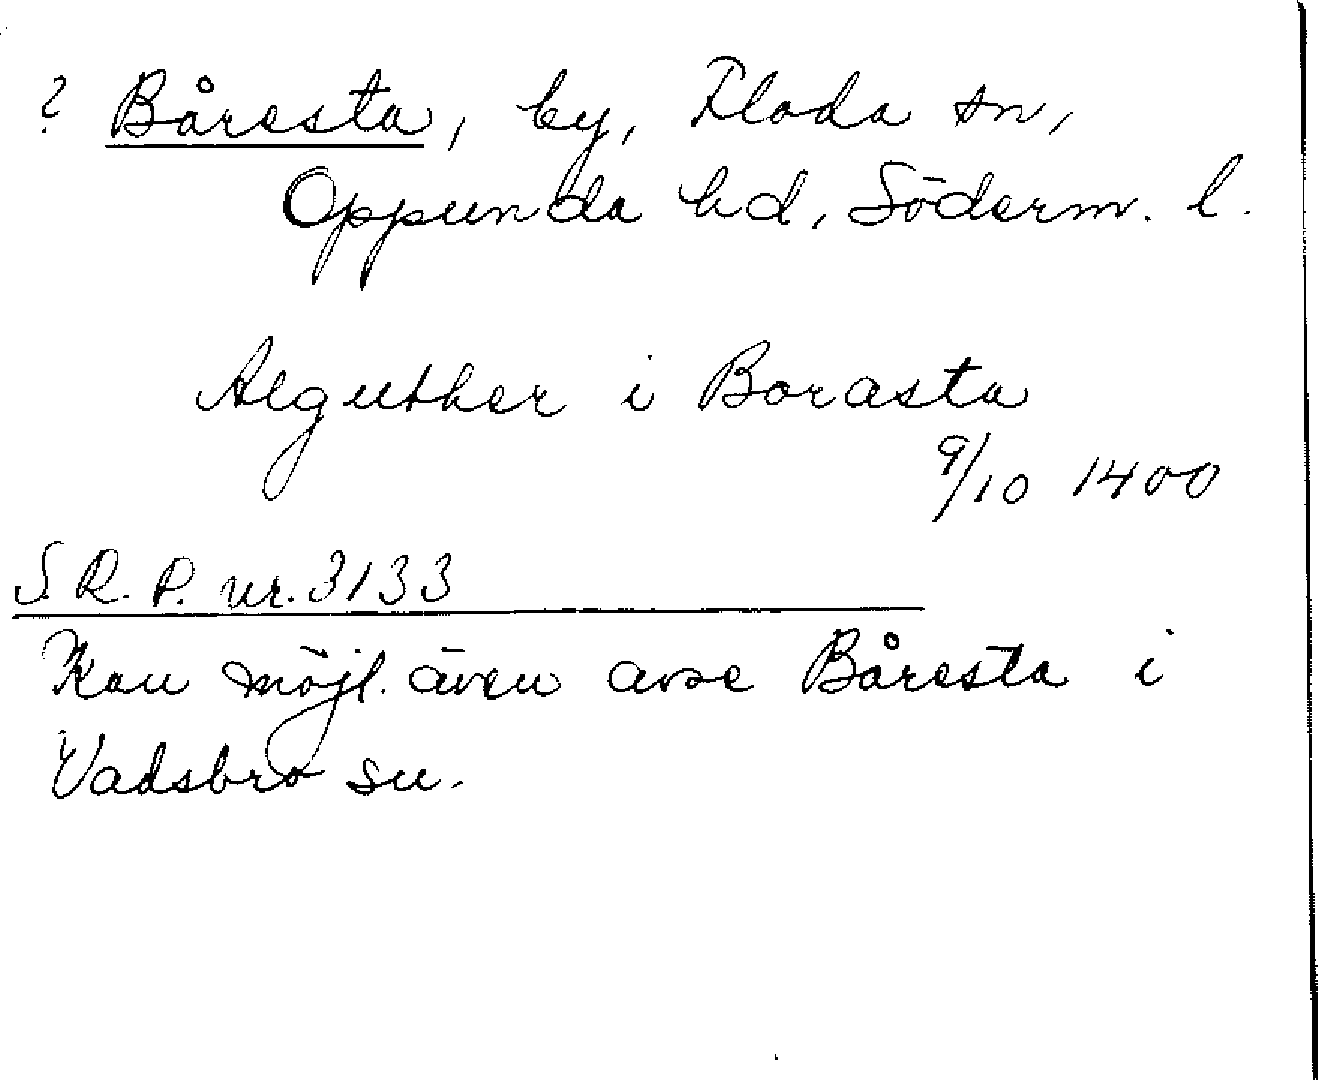 ? Båresta, by, Floda sn,
Oppunda hd, Söderm. l.
Alguther i Borasta
9/10 1400
S.R.P. nr. 3133
Kan möjl. även avse Båresta i
Vadsbro sn.